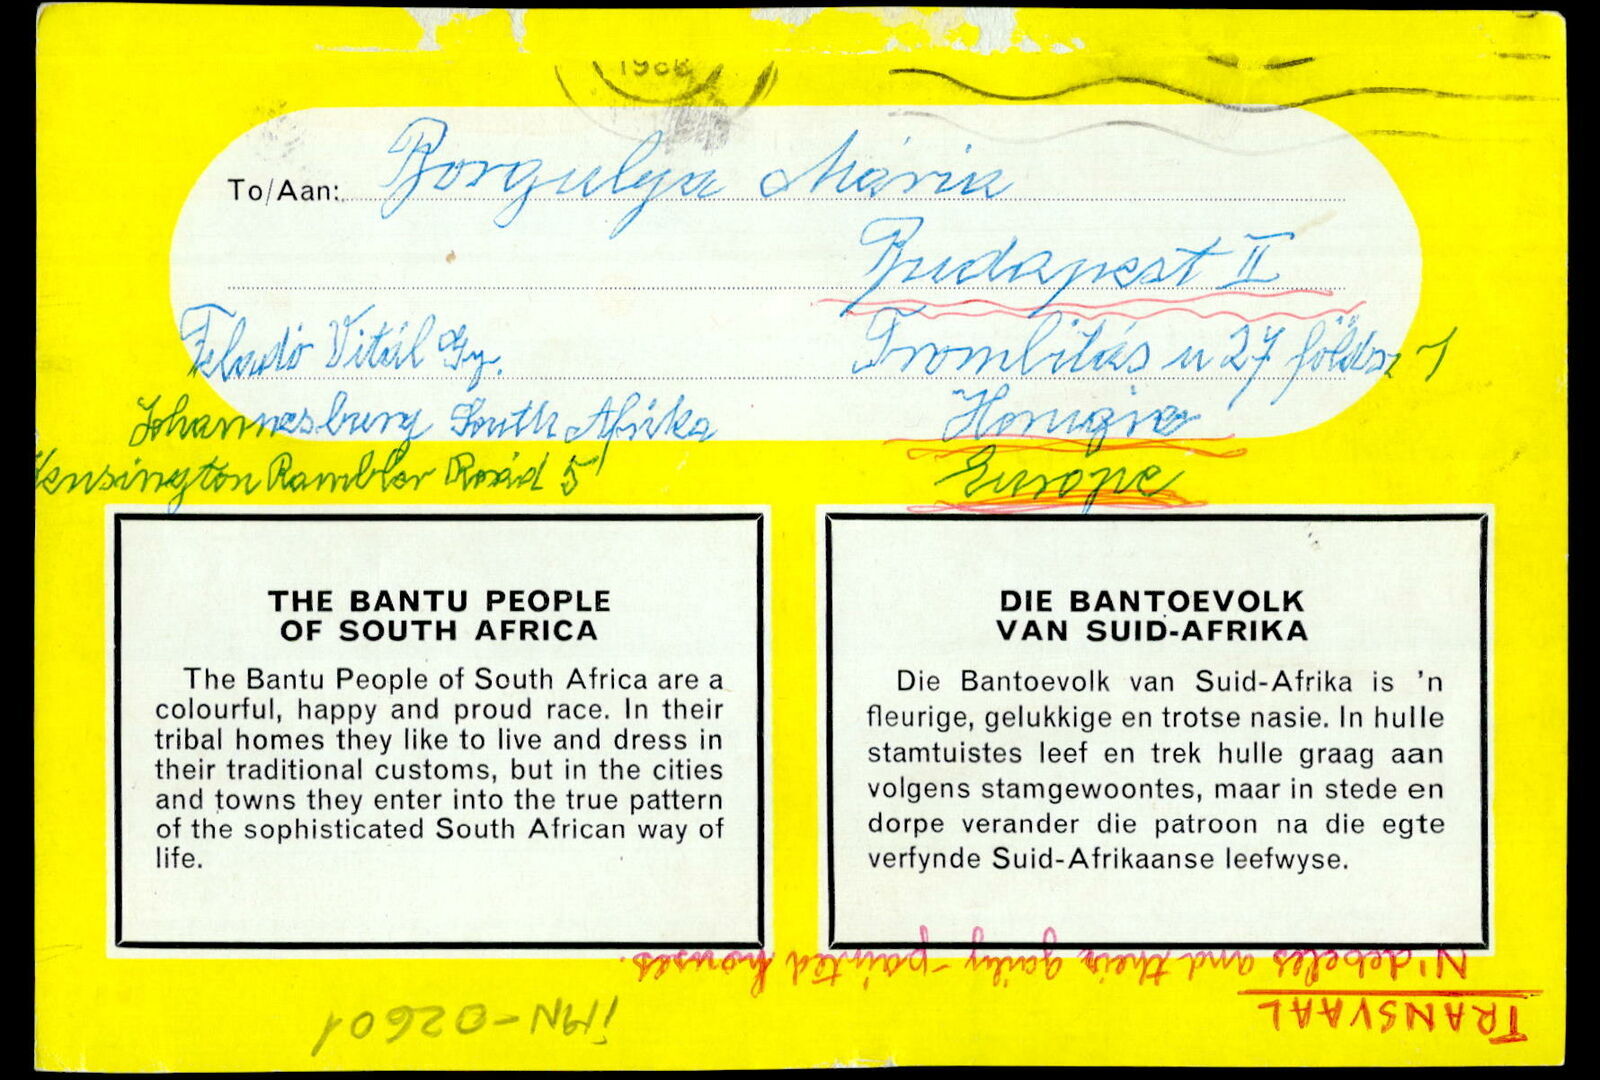 To/Aan: Borgulya Mária
Budapest II
Trombitás u 27 földsz 1
Hongria
Europe
Feladó Vitál Gy.
Johannesburg South Afrika
Kensington Rambler Road 5
THE BANTU PEOPLE
OF SOUTH AFRICA
The Bantu People of South Africa are a
colourful, happy and proud race. In their
tribal homes they like to live and dress in
their traditional customs, but in the cities
and towns they enter into the true pattern
of the sophisticated South African way of
life.
DIE BANTOEVOLK
VAN SUID-AFRIKA
Die Bantoevolk van Suid-Afrika is 'n
fleurige, gelukkige en trotse nasie. In hulle
stamtuistes leef en trek hulle graag aan
volgens stamgewoontes, maar in stede en
dorpe verander die patroon na die egte
verfynde Suid-Afrikaanse leefwyse.
TRANSVAAL
N'debeles and their gaily-painted houses.